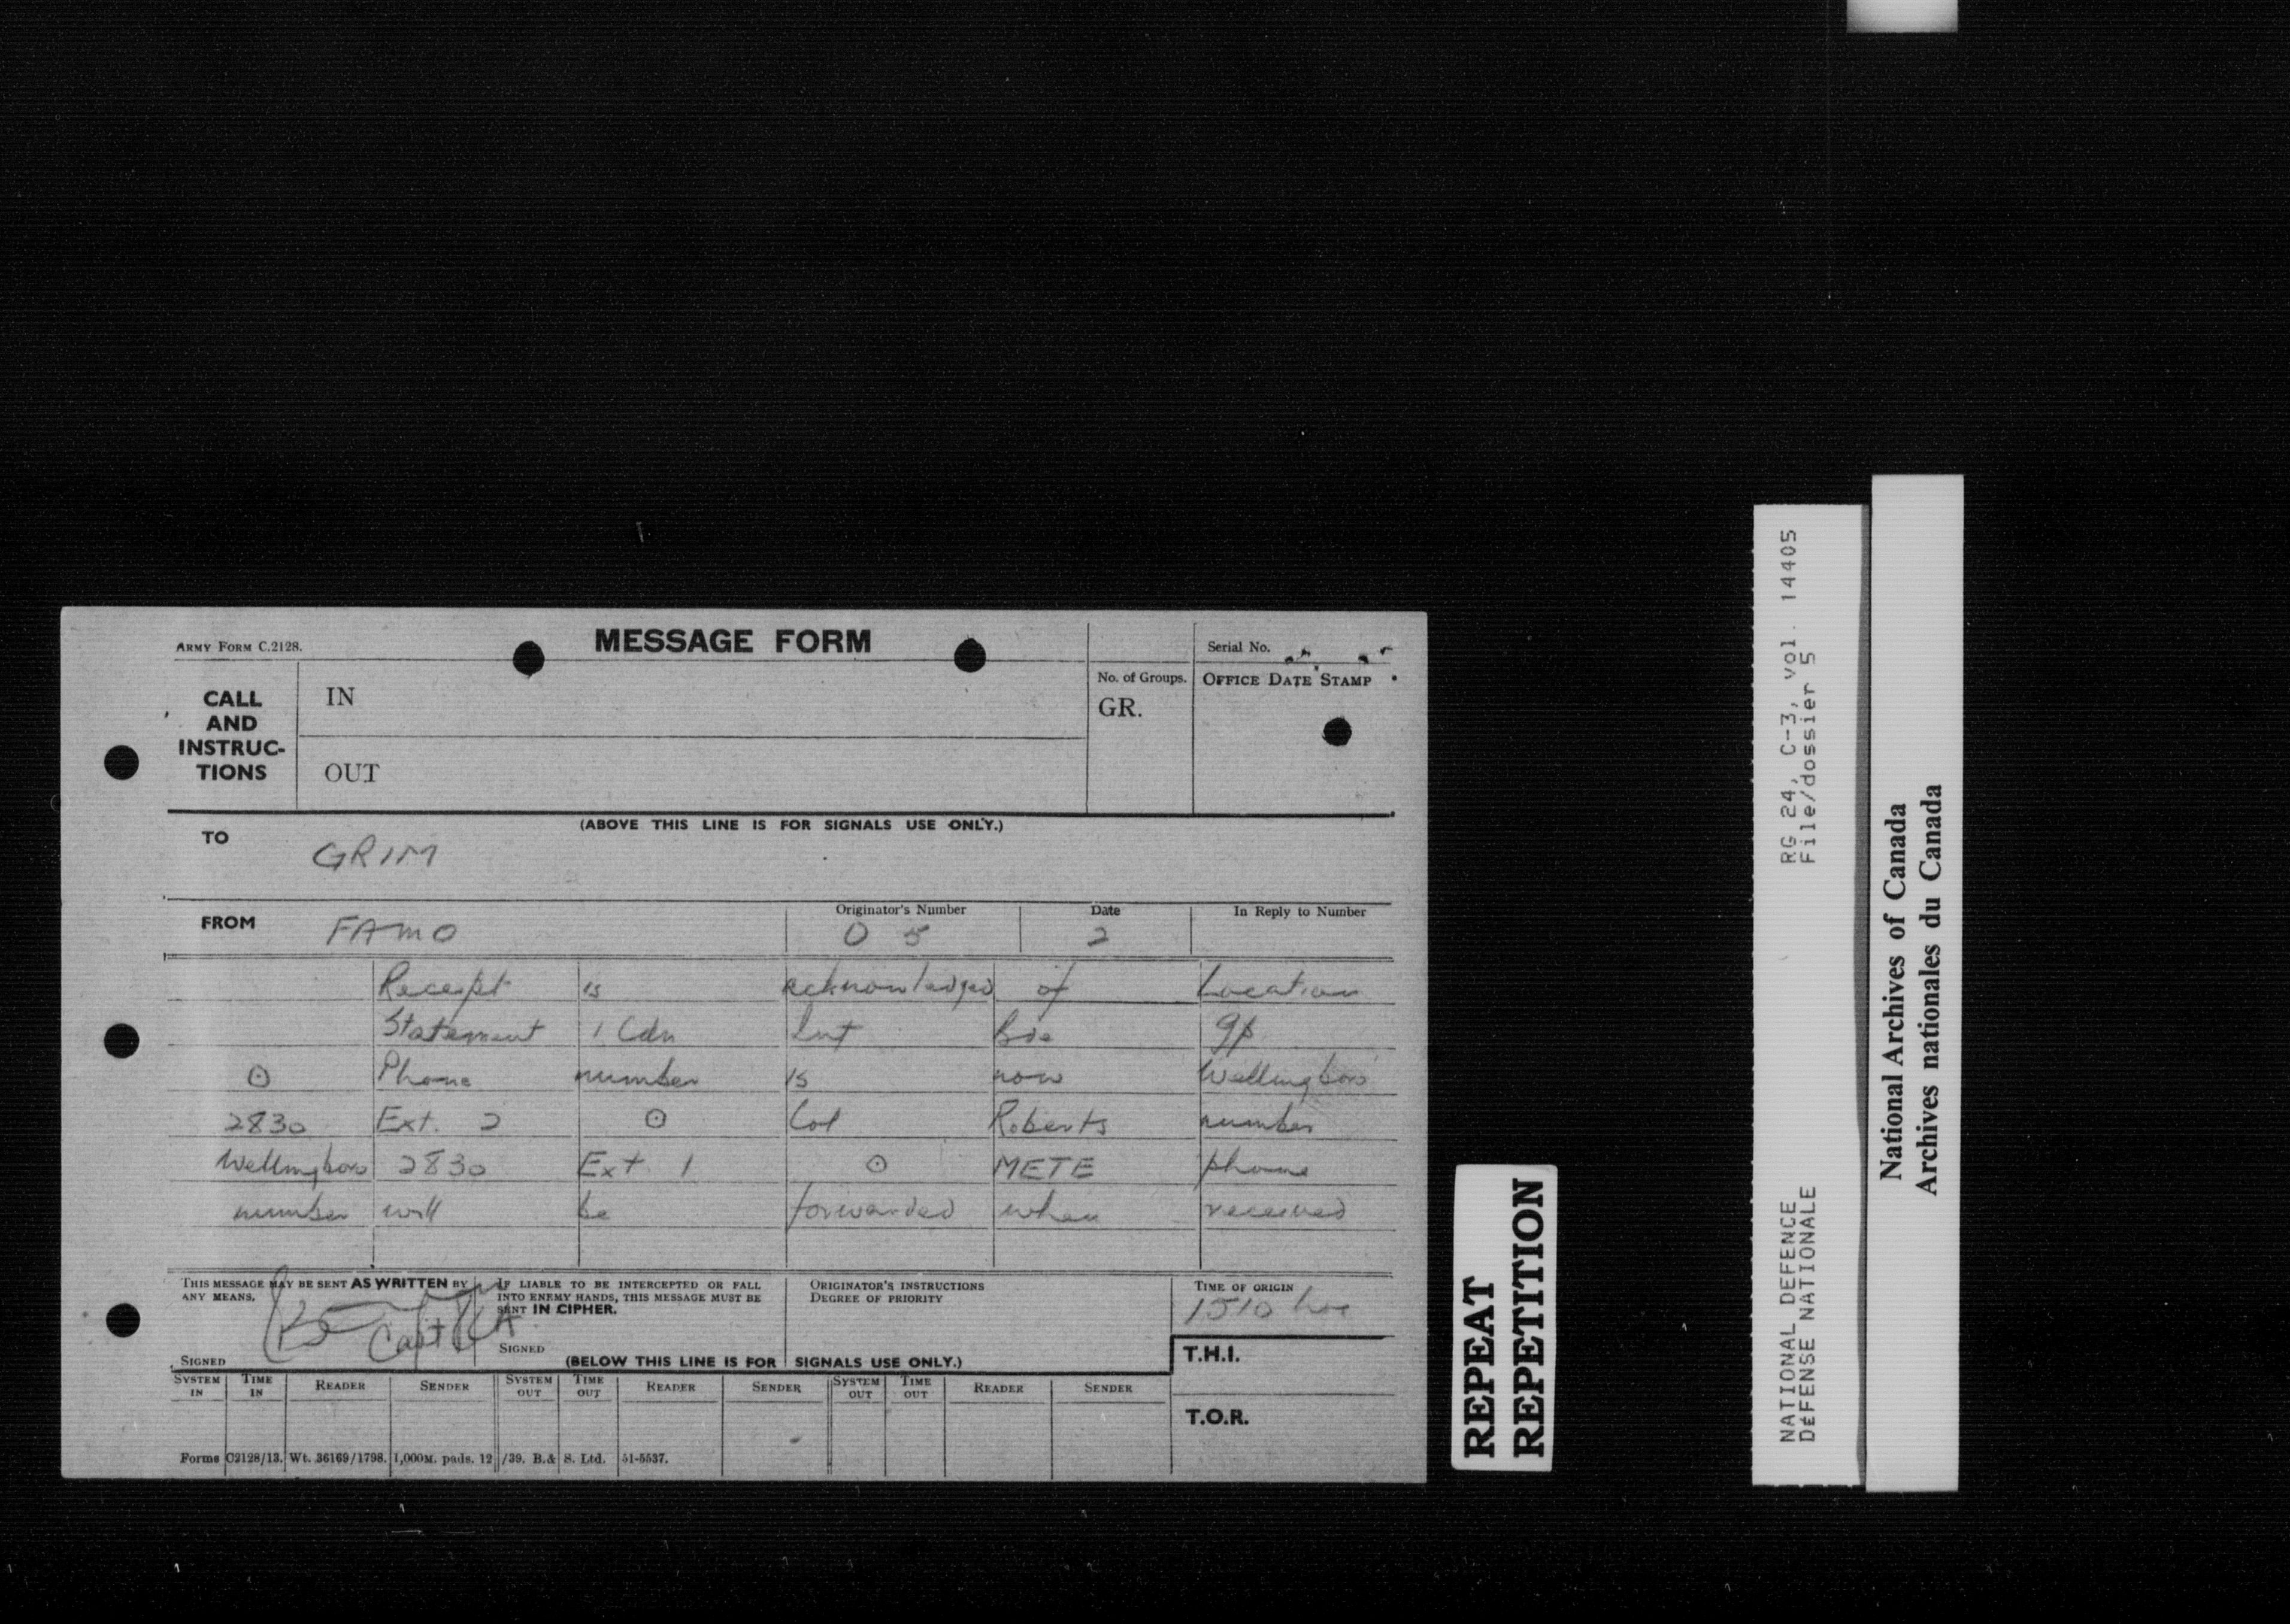 ARMY FORM C.2128.
MESSAGE FORM
Serial No.
CALL AND INSTRUC-TIONS
IN
OUT
No. of Groups.
GR.
OFFICE DATE STAMP
(ABOVE THIS LINE IS FOR SIGNALS USE ONLY.)
TO GRIM
FROM FAMO
Originator's Number
O 5
Date
2
In Reply to Number
Receipt is acknowledged of Location
Statement 1 Cdn Inf Bde gp
⊙ Phone number is now Wellingboro
2830 Ext. 2 ⊙ Col Roberts number
Wellingboro 2830 Ext. 1 ⊙ METE phone
number will be forwarded when received
THIS MESSAGE MAY BE SENT AS WRITTEN BY
ANY MEANS.
Capt
SIGNED
IF LIABLE TO BE INTERCEPTED OR FALL
INTO ENEMY HANDS, THIS MESSAGE MUST BE
SENT IN CIPHER.
SIGNED
ORIGINATOR'S INSTRUCTIONS
DEGREE OF PRIORITY
TIME OF ORIGIN
1510 hrs
T.H.I.
T.O.R.
(BELOW THIS LINE IS FOR SIGNALS USE ONLY.)
SYSTEM IN TIME IN READER SENDER SYSTEM OUT TIME OUT READER SENDER SYSTEM OUT TIME OUT READER SENDER
Forms C2128/13. Wt. 36169/1798. 1,000M. pads. 12/39. B.& S. Ltd. 51-5537.
REPEAT
REPETITION
NATIONAL DEFENCE RG 24, C-3, vol. 14405
DÉFENSE NATIONALE File/dossier 5
National Archives of Canada
Archives nationales du Canada